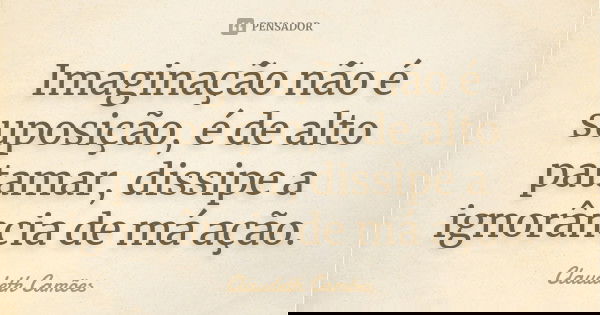 PENSADOR
Imaginação não é
suposição, é de alto
patamar, dissipe a
ignorância de má ação.
Claudeth Camões